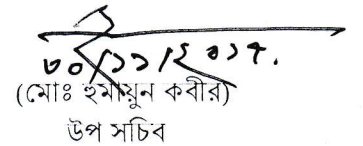 ৩০/১১/২০১৭.
(মোঃ হুমায়ুন কবীর)
উপ সচিব